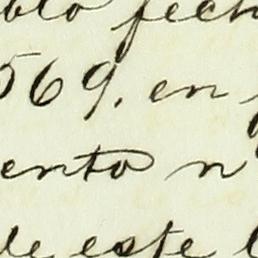 blo fech
569. en
ento n
de este l